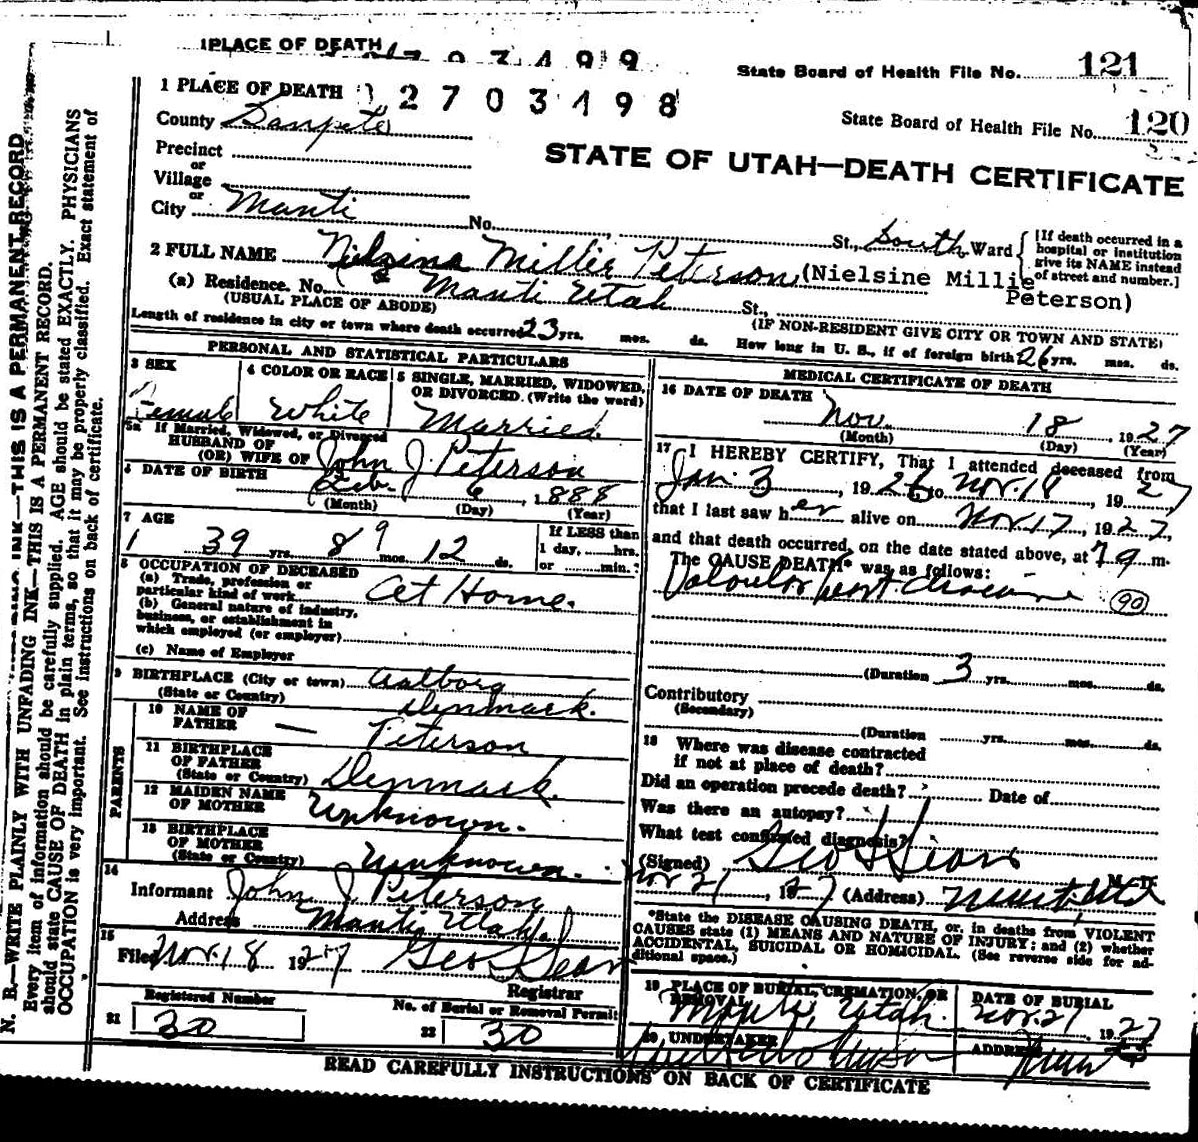 PLACE OF DEATH
State Board of Health File No. 121
1 PLACE OF DEATH 2703498
State Board of Health File No. 120
County Sanpete
STATE OF UTAH—DEATH CERTIFICATE
Precinct
or
Village
or
City Manti No. St., South Ward
[If death occurred in a hospital or institution give its NAME instead of street and number.]
2 FULL NAME Nielsina Millie Peterson (Nielsine Millie Peterson)
(a) Residence. No. Manti Utah St.,
(USUAL PLACE OF ABODE) (IF NON-RESIDENT GIVE CITY OR TOWN AND STATE)
Length of residence in city or town where death occurred 23 yrs. mos. ds. How long in U. S., if of foreign birth 26 yrs. mos. ds.
PERSONAL AND STATISTICAL PARTICULARS
3 SEX
Female
4 COLOR OR RACE
White
5 SINGLE, MARRIED, WIDOWED, OR DIVORCED. (Write the word)
Married.
5a If Married, Widowed, or Divorced
HUSBAND OF
(OR) WIFE OF John J. Peterson
6 DATE OF BIRTH Feb. 6, 1888
(Month) (Day) (Year)
7 AGE
39 yrs. 8 9 mos. 12 ds.
If LESS than
1 day, hrs.
or min.
8 OCCUPATION OF DECEASED
(a) Trade, profession or
particular kind of work At Home.
(b) General nature of industry,
business, or establishment in
which employed (or employer)
(c) Name of Employer
9 BIRTHPLACE (City or town) Aalborg
(State or Country) Denmark.
PARENTS
10 NAME OF
FATHER — Peterson
11 BIRTHPLACE
OF FATHER
(State or Country) Denmark.
12 MAIDEN NAME
OF MOTHER Unknown.
13 BIRTHPLACE
OF MOTHER
(State or Country) Unknown.
14
Informant John J. Peterson
Address Manti Utah
15
Filed Nov. 18 1927 Geo. L. Sears
Registrar
Registered Number
21 30
No. of Burial or Removal Permit
22 30
MEDICAL CERTIFICATE OF DEATH
16 DATE OF DEATH
Nov. 18, 1927
(Month) (Day) (Year)
17 I HEREBY CERTIFY, That I attended deceased from
Jan. 3, 1926 to Nov. 18, 1927
that I last saw her alive on Nov. 17, 1927,
and that death occurred, on the date stated above, at 7 a m.
The CAUSE DEATH* was as follows:
Valvular heart disease (90)
(Duration 3 yrs. mos. ds.
Contributory
(Secondary)
(Duration yrs. mos. ds.
18 Where was disease contracted
if not at place of death?
Did an operation precede death? Date of
Was there an autopsy?
What test confirmed diagnosis?
(Signed) Geo L Sears M. D.
Nov 21, 1927 (Address) Manti, Utah
*State the DISEASE CAUSING DEATH, or, in deaths from VIOLENT
CAUSES state (1) MEANS AND NATURE OF INJURY; and (2) whether
ACCIDENTAL, SUICIDAL OR HOMICIDAL. (See reverse side for ad-
ditional space.)
19 PLACE OF BURIAL, CREMATION, OR
REMOVAL
Manti, Utah.
DATE OF BURIAL
Nov. 21 1927
20 UNDERTAKER
ADDRESS
Manti
READ CAREFULLY INSTRUCTIONS ON BACK OF CERTIFICATE
N. B.—WRITE PLAINLY WITH UNFADING INK—THIS IS A PERMANENT RECORD.
Every item of information should be carefully supplied. AGE should be stated EXACTLY. PHYSICIANS
should state CAUSE OF DEATH in plain terms, so that it may be properly classified. Exact statement of
OCCUPATION is very important. See instructions on back of certificate.